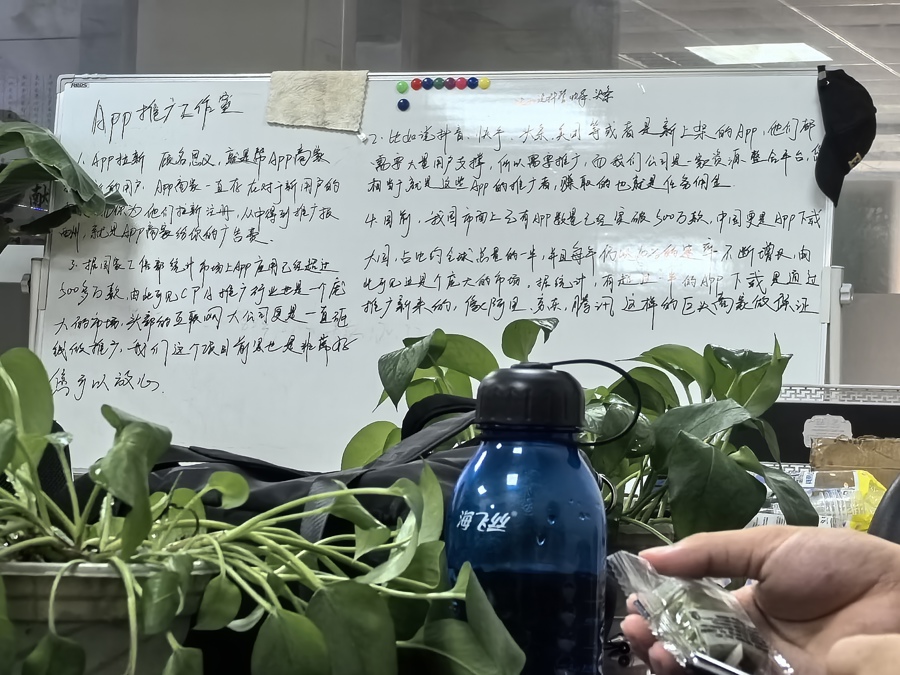 App推广工作室
1. App拉新 顾名思义,就是帮App商家
用户. App商家一直存在对于新用户的
你为他们拉新注册,从中得到推广报
酬,就是App商家给你的广告费.
3. 据国家工信部统计市场上App应用已经超过
500多万款,由此可见CPA推广行业也是一个庞
大的市场,头部的互联网大公司更是一直砸
钱做推广,我们这个项目前景也是非常好
您可以放心.
2. 比如说抖音、快手、头条、美团等或者是新上架的App,他们都
需要大量用户支撑,所以需要推广,而我们公司是一家资源整合平台,
相当于就是这些App的推广者,赚取的也就是任务佣金.
4. 目前,我国市面上已有App数量已经突破500万款,中国更是App下载
大国,占比约全球总量的一半,并且每年 不断增长,由
此可见这是个庞大的市场. 据统计,有超过一半的APP下载是通过
推广新来的,像阿里、京东、腾讯这样的巨头商家做保证